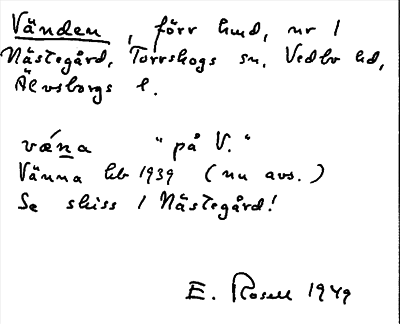 Vänden, förr hmd, nr 1
Nästegård, Torrskogs sn, Vedbo hd,
Älvsborgs l.
vǽna "på V."
Vänna hb 1939 (nu avs.)
Se skiss / Nästegård!
E. Rosell 1949